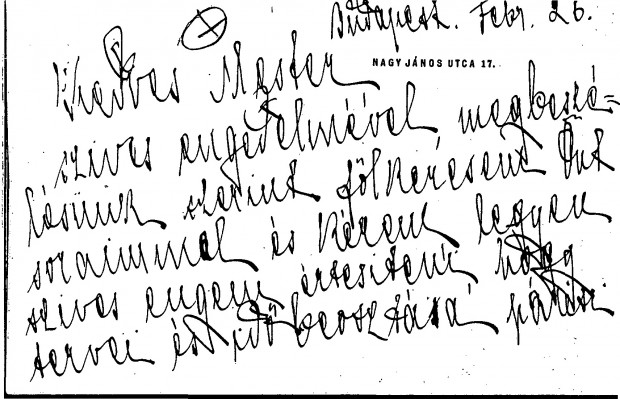 Budapest. Febr. 26.
NAGY JÁNOS UTCA 17.
Kedves Mester
szives engedelmével megbeszé=
lésünk szerint fölkeresem Önt
soraimmal és kérem legyen
szives engem értesiteni hogy
tervei és időbeosztása párisi